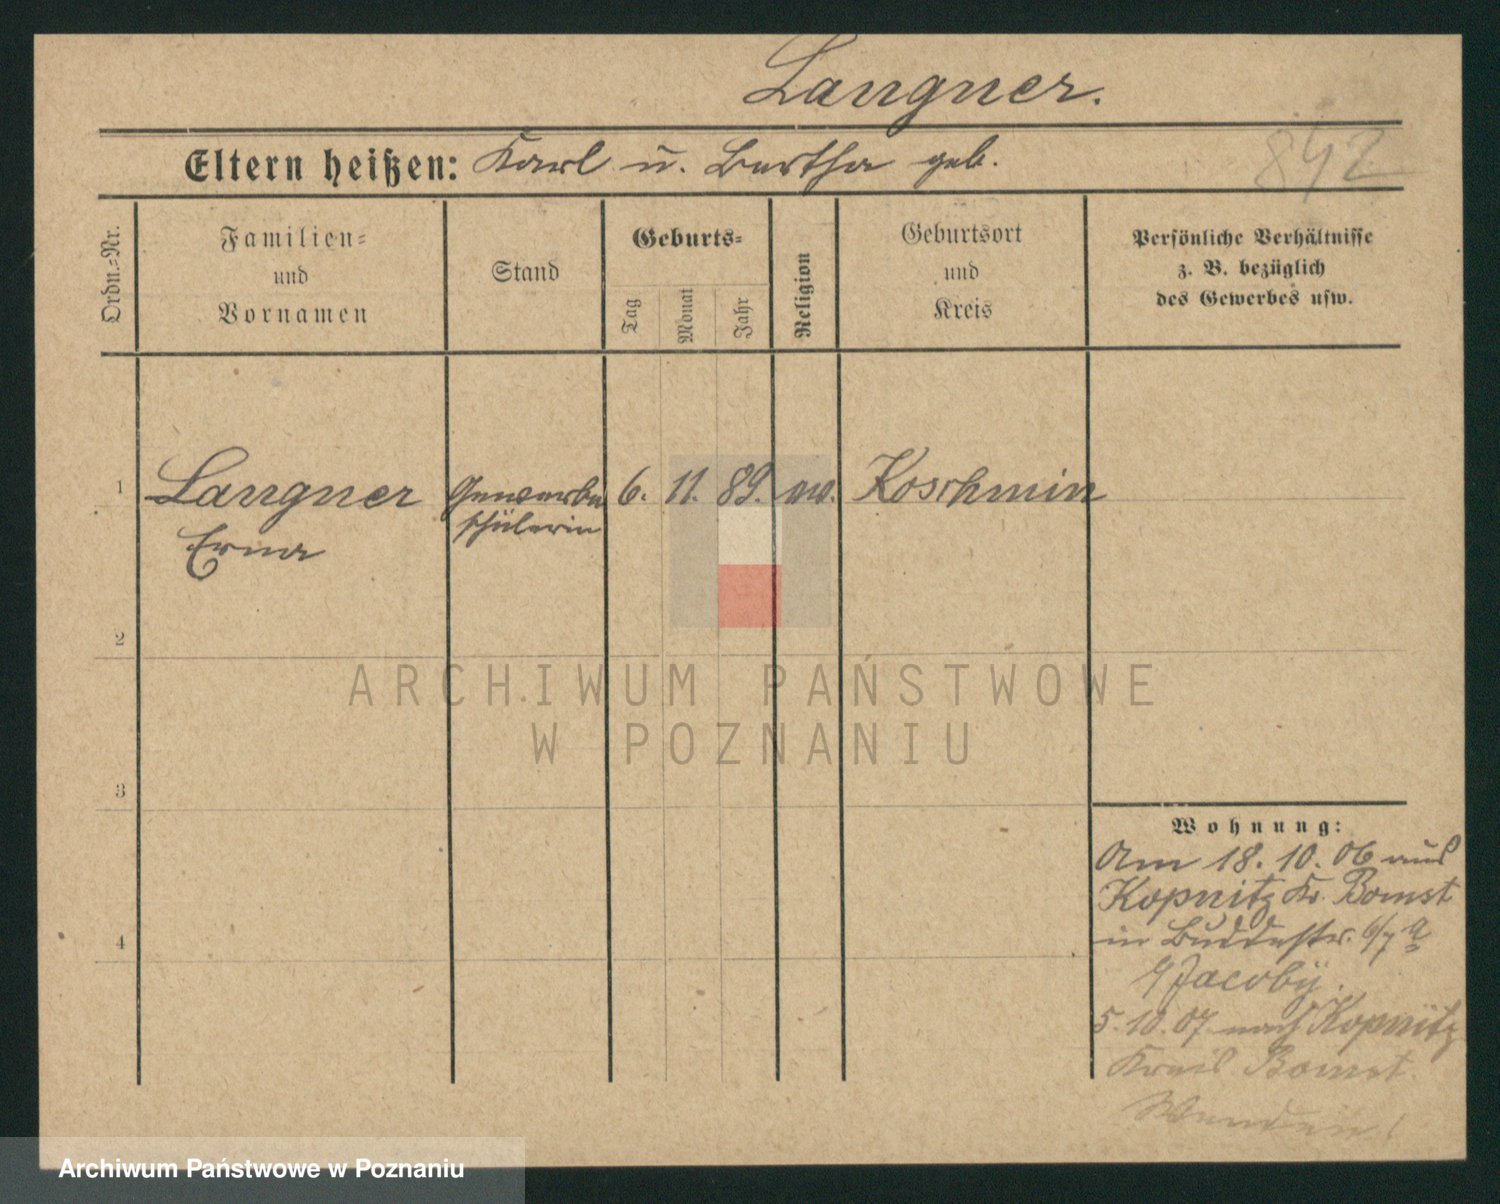 Langner.
842
Eltern heißen: Karl u. Bertha geb.
Ordn.=Nr.
Familien=
und
Vornamen
Stand
Geburts=
Tag
Monat
Jahr
Religion
Geburtsort
und
Kreis
Persönliche Verhältnisse
z. B. bezüglich
des Gewerbes usw.
1 Langner Gewerbe 6. 11. 89. ev. Koschmin
Erna schülerin
2
3
4
ARCHIWUM PAŃSTWOWE
W POZNANIU
Wohnung:
Am 18. 10. 06 aus
Kopnitz Kr. Bomst
in Buddestr. 6/7 a
Jacoby.
5. 10. 07 nach Kopnitz
Kreis Bomst
Archiwum Państwowe w Poznaniu